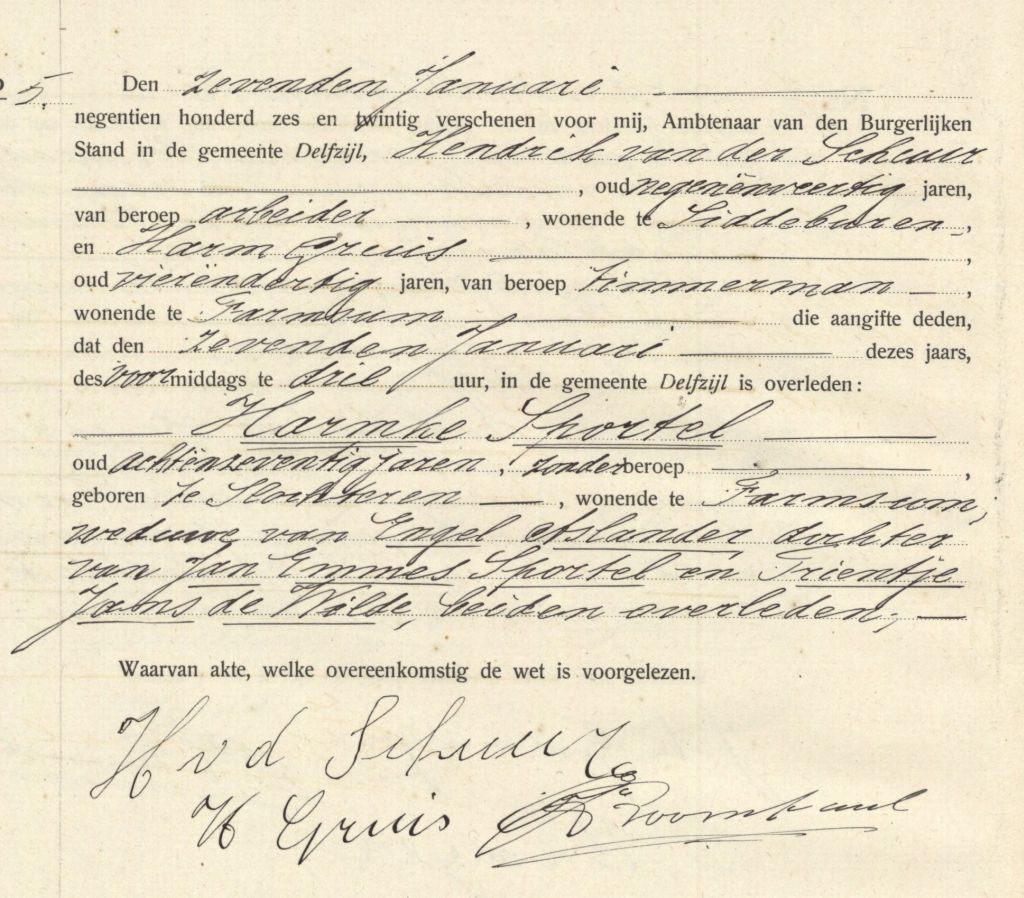 5.
Den zevenden Januari
negentien honderd zes en twintig verschenen voor mij, Ambtenaar van den Burgerlijken
Stand in de gemeente Delfzijl, Hendrik van der Schuur
, oud negenënveertig jaren,
van beroep arbeider , wonende te Siddeburen,
en Harm Gruis ,
oud vierëndertig jaren, van beroep timmerman ,
wonende te Farmsum die aangifte deden,
dat den zevenden Januari dezes jaars,
des voormiddags te drie uur, in de gemeente Delfzijl is overleden:
Harmke Sportel
oud achtënzeventig jaren, zonder beroep ,
geboren te Slochteren , wonende te Farmsum,
weduwe van Engel Aslander, dochter
van Jan Emmes Sportel en Trientje
Jans de Wilde, beiden overleden,
Waarvan akte, welke overeenkomstig de wet is voorgelezen.
H v d Schuur
H Gruis